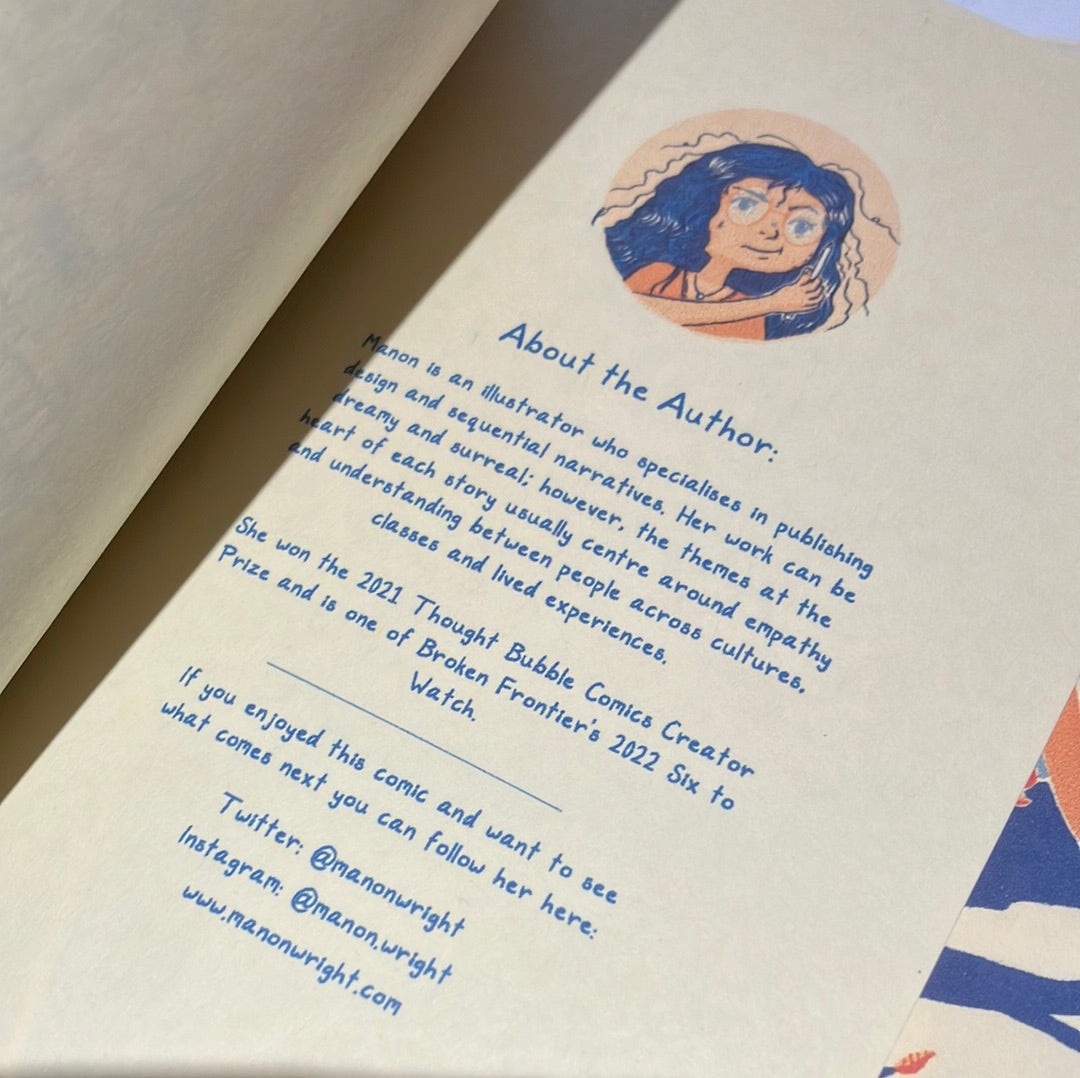 About the Author:
Manon is an illustrator who specialises in publishing
design and sequential narratives. Her work can be
dreamy and surreal; however, the themes at the
heart of each story usually centre around empathy
and understanding between people across cultures,
classes and lived experiences.
She won the 2021 Thought Bubble Comics Creator
Prize and is one of Broken Frontier's 2022 Six to
Watch.
If you enjoyed this comic and want to see
what comes next you can follow her here:
Twitter: @manonwright
Instagram: @manon.wright
www.manonwright.com